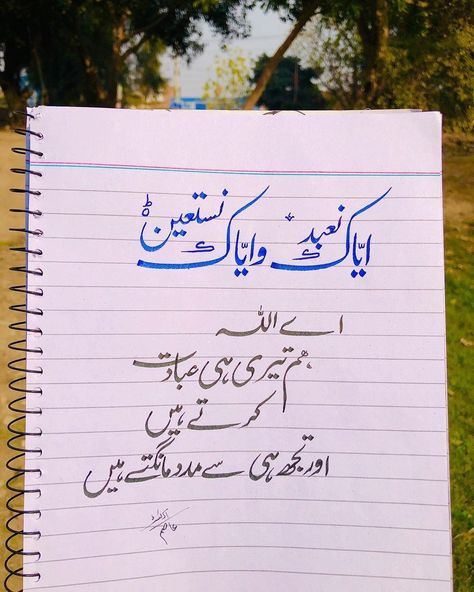 ایّاک نعبد وایّاک نستعین
اے اللہ
ہم تیری ہی عبادت
کرتے ہیں
اور تجھ ہی سے مدد مانگتے ہیں